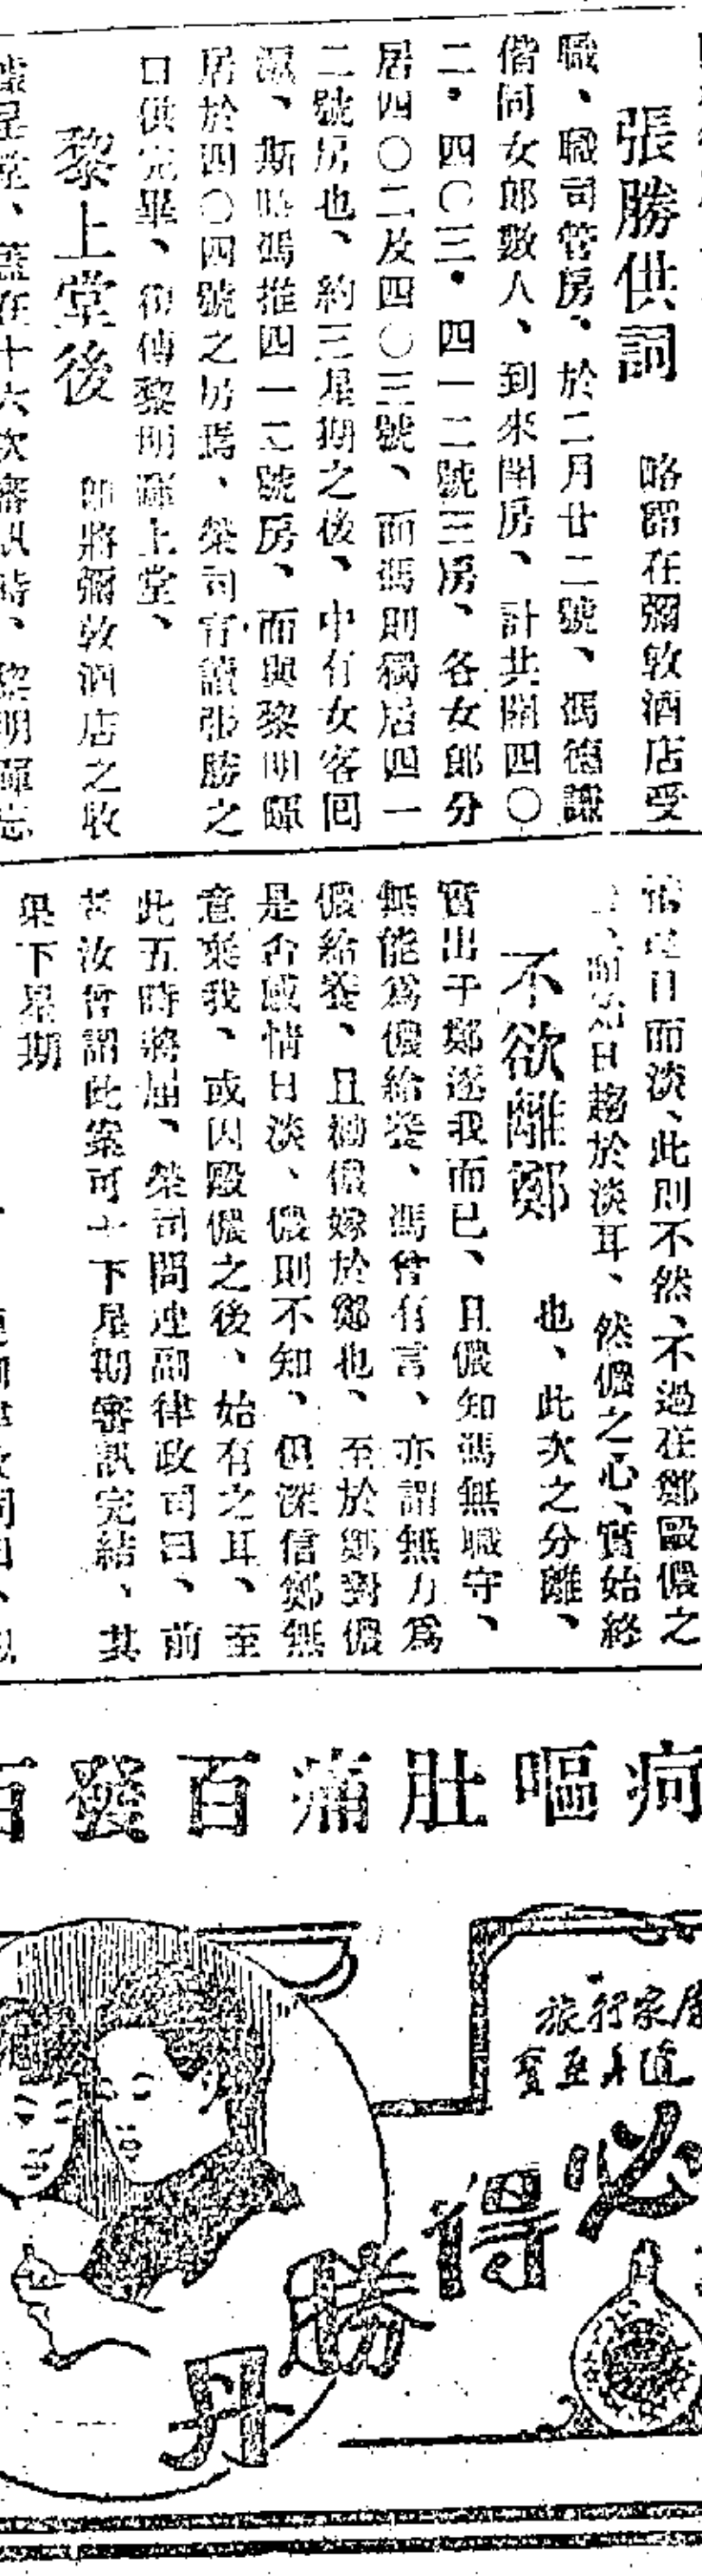 張勝供詞
略謂在彌敦酒店受
職、職司管房、於二月廿二號、馮德謙
偕同女郎數人、到來開房、計共開四〇
二・四〇三・四一二號三房、各女郎分
居四〇二及四〇三號、而馮則獨居四一
二號房也、約三星期之後、中有女客回
滬、斯時馮推四一二號房、而與黎明暉
居於四〇四號之房焉、榮司官讀張勝之
口供完畢、復傳黎明暉上堂、
黎上堂後
即將彌敦酒店之收
在十六次審訊時、黎明暉忘
日而淡、此則不然、不過在鄭毆儂之
日趨於淡耳、然儂之心、實始終
不欲離鄭
也、此次之分離、
實出于鄭逐我而已、且儂知馮無職守、
無能為儂給養、馮曾有言、亦謂無力為
儂給養、且勸儂嫁於鄭也、至於鄭對儂
是否感情日淡、儂則不知、但深信鄭無
意棄我、或因毆儂之後、始有之耳、至
此五時將屆、榮司問連副律政司曰、前
汝曾謂此案可於下星期審訊完結、其
果下星期
痾嘔肚痛百發百
旅行家居
寶至身隨
必得勝丹